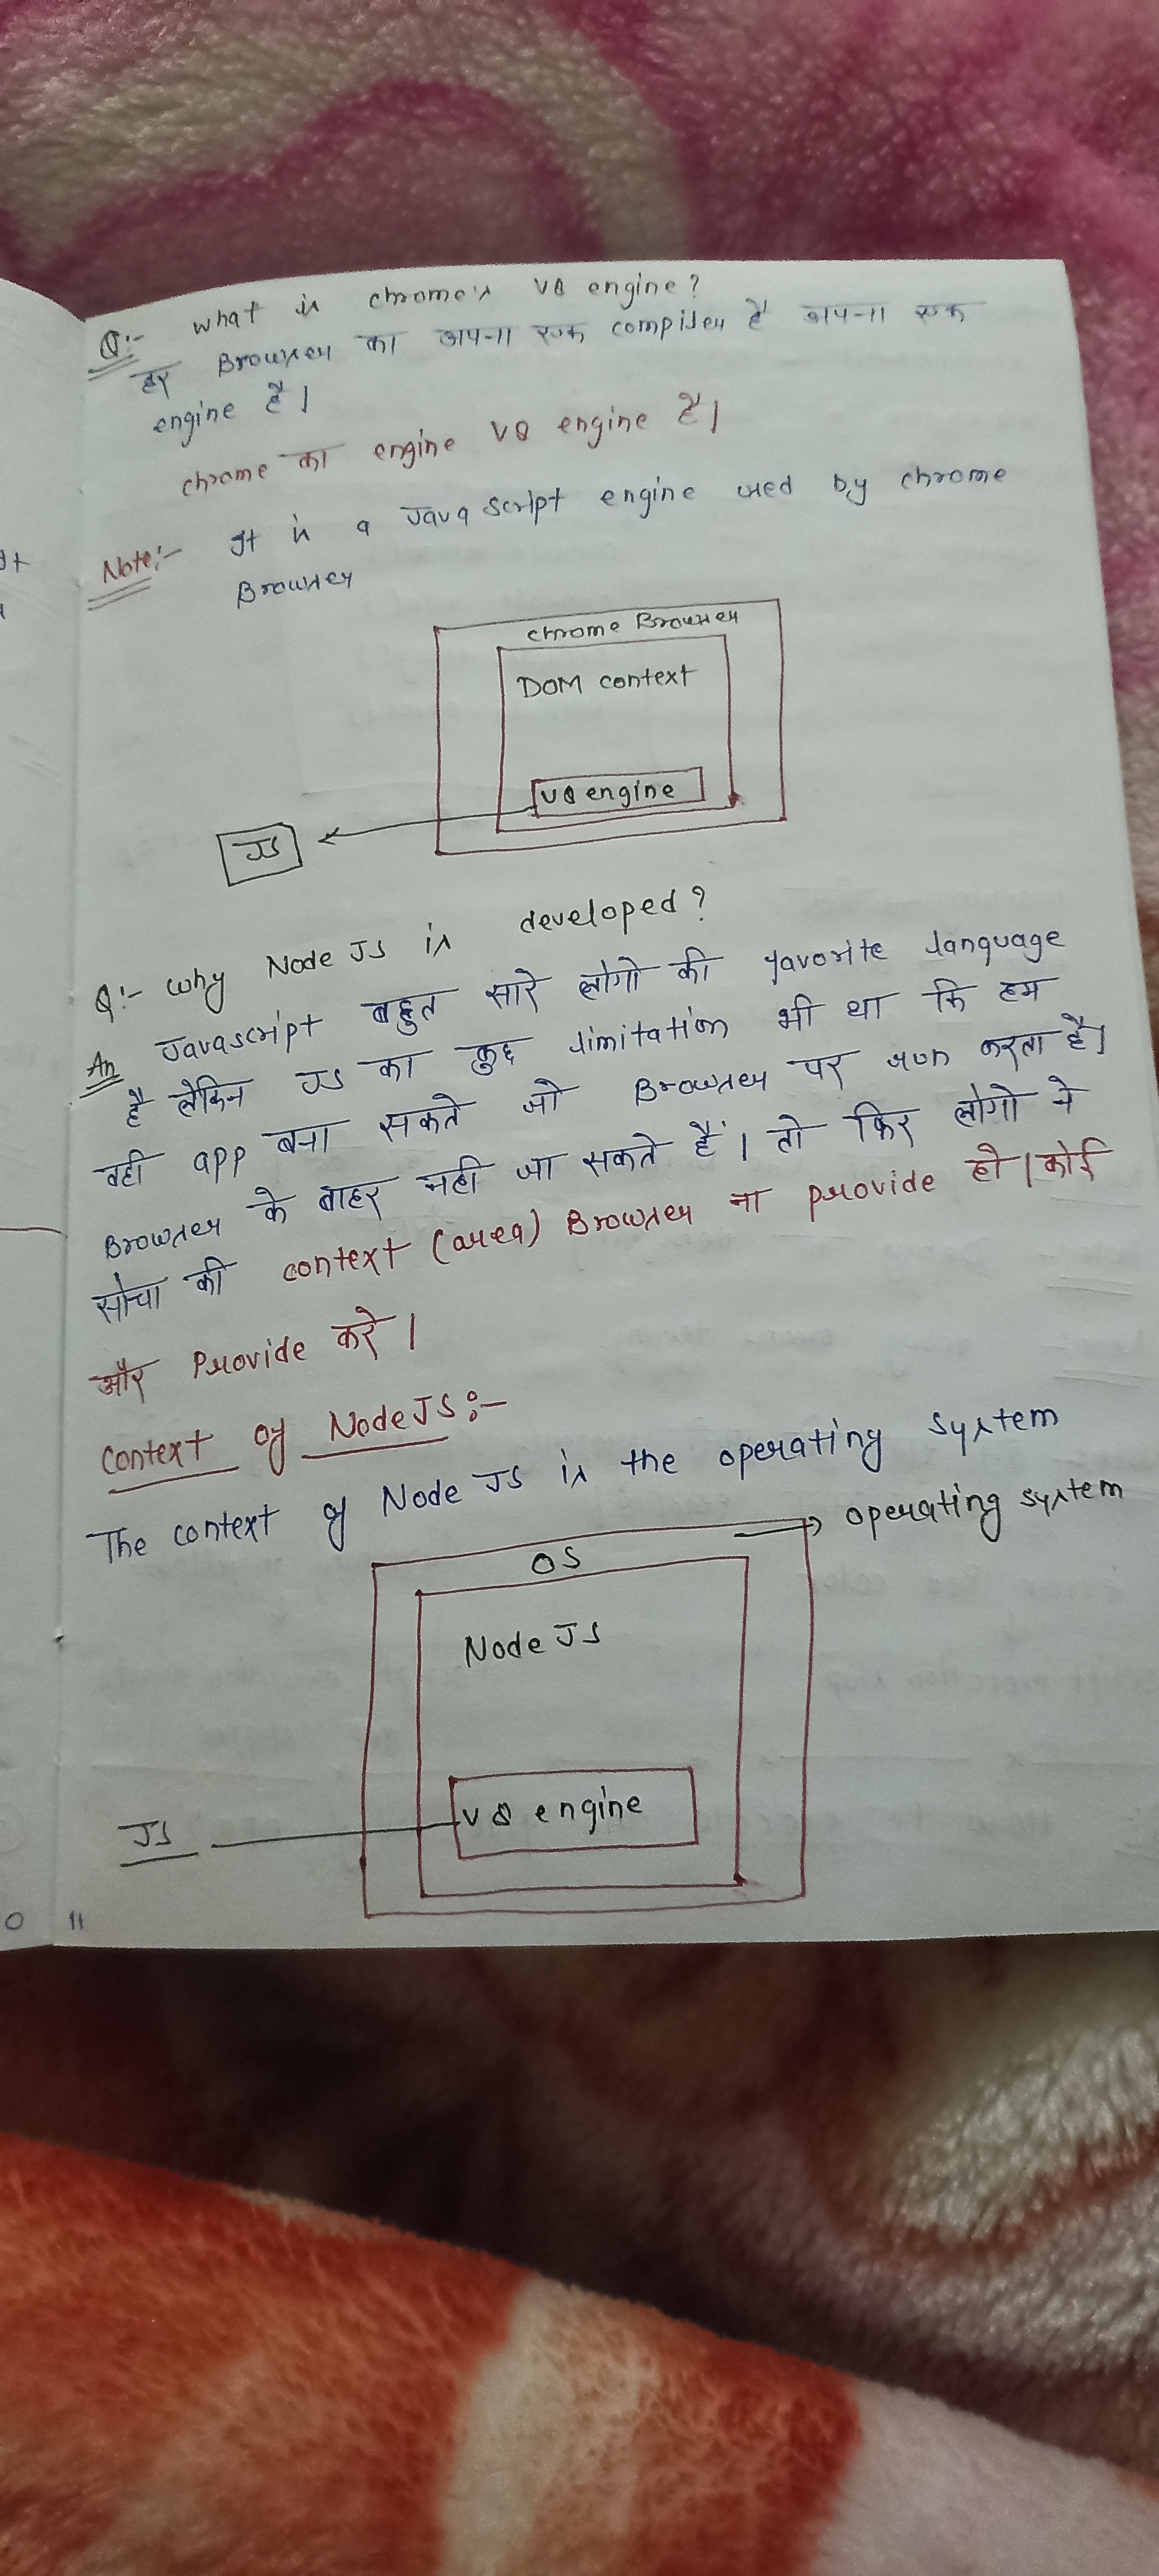 Q:- what is chrome's V8 engine?
हर Browser का अपना एक compiler है अपना एक
engine है।
chrome का engine V8 engine है।
Note:- It is a Java script engine used by chrome
Browser
chrome Browser
DOM context
V8 engine
JS
Q:- why Node JS is developed?
An Javascript बहुत सारे लोगो की favorite language
है लेकिन JS का कुछ limitation भी था कि हम
वही app बना सकते जो Browser पर run करता है।
Browser के बाहर नही जा सकते हैं। तो फिर लोगो ने
सोचा की context (area) Browser ना provide हो। कोई
और Provide करे।
Context of Node JS:-
The context of Node JS is the operating system
operating system
OS
Node JS
V8 engine
JS
11